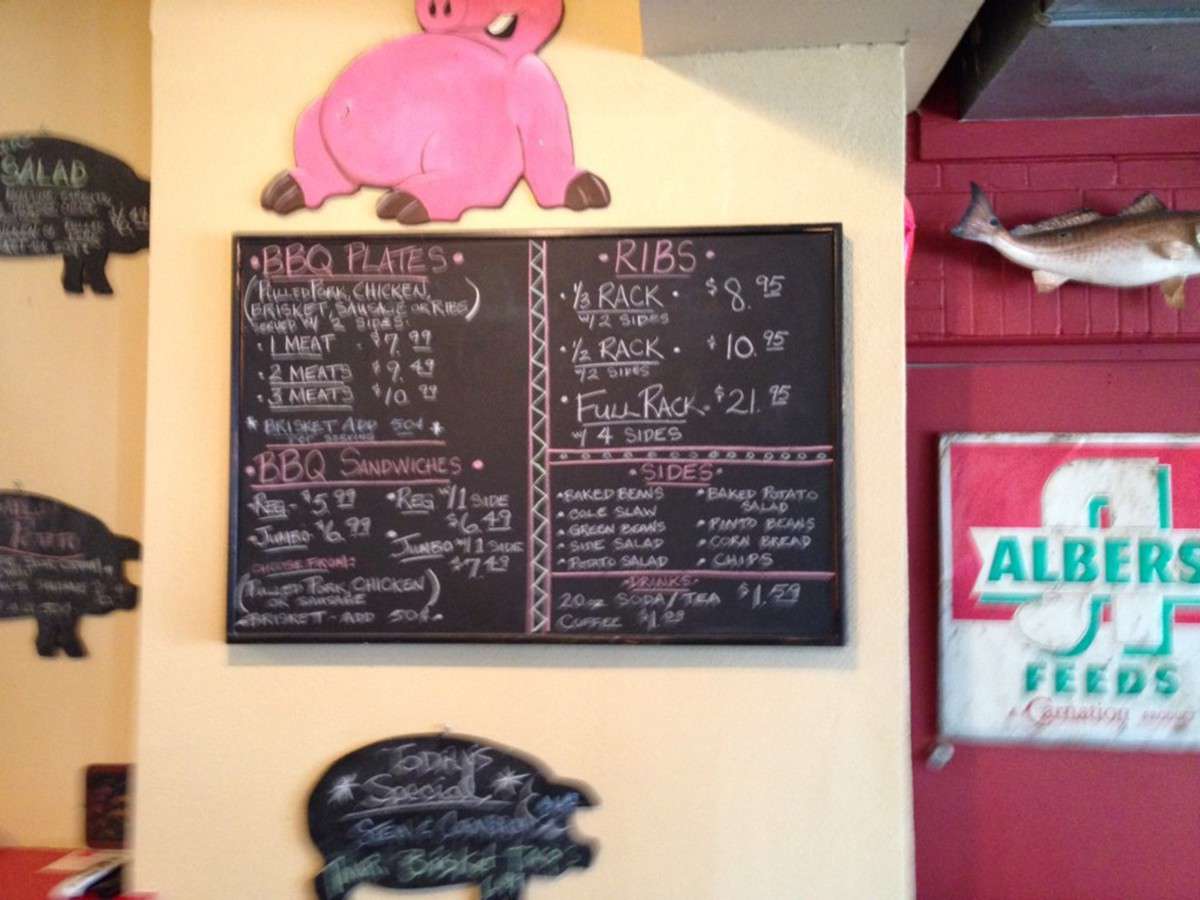 SALAD
• BBQ PLATES •
(PULLED PORK, CHICKEN,
BRISKET, SAUSAGE OR RIBS)
SERVED W/ 2 SIDES.
• 1 MEAT - $7.99
• 2 MEATS $9.49
• 3 MEATS $10.99
* BRISKET ADD 50¢ *
• BBQ SANDWICHES •
• REG - $5.99
• JUMBO $6.99
• REG W/1 SIDE
$6.49
• JUMBO W/1 SIDE
$7.49
CHOOSE FROM:
(PULLED PORK, CHICKEN
OR SAUSAGE)
BRISKET - ADD 50¢
• RIBS •
• 1/3 RACK • $8.95
W/2 SIDES
• 1/2 RACK • $10.95
/2 SIDES
• FULL RACK • $21.95
W/ 4 SIDES
• SIDES •
• BAKED BEANS
• COLE SLAW
• GREEN BEANS
• SIDE SALAD
• POTATO SALAD
• BAKED POTATO
SALAD
• PINTO BEANS
• CORN BREAD
• CHIPS
• DRINKS •
20oz SODA/TEA $1.59
COFFEE
TODAY'S
* Special *
ALBERS
FEEDS
A Carnation